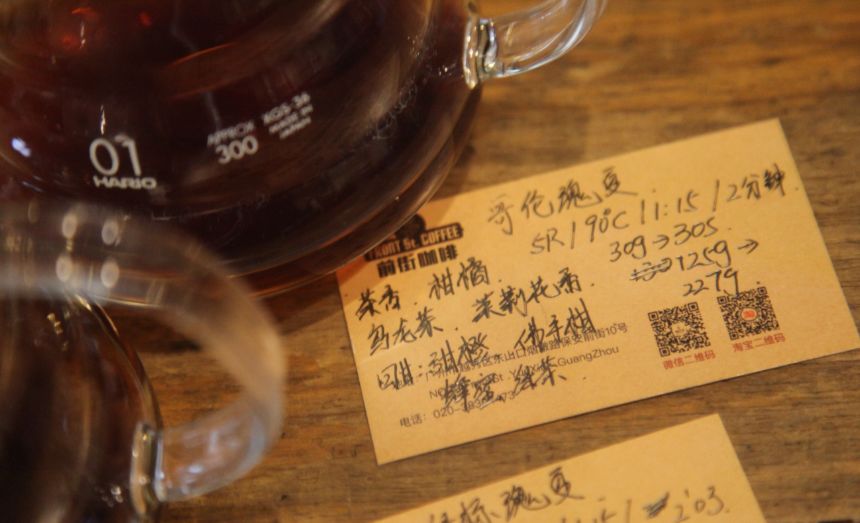 01
HARIO
APPROX XGS-36
300
MADE IN
哥伦瑰夏
5R/90℃/1:15/2分钟
FRONT St. COFFEE
前街咖啡
30g→305
125g→
227g
茶香.柑橘
乌龙茶.茉莉花香
回甘:甜橙 佛手柑
蜂蜜 绿茶
东山口
保安前街10号
GuangZhou
电话:020-
微信二维码
淘宝二维码
瑰夏
2'03